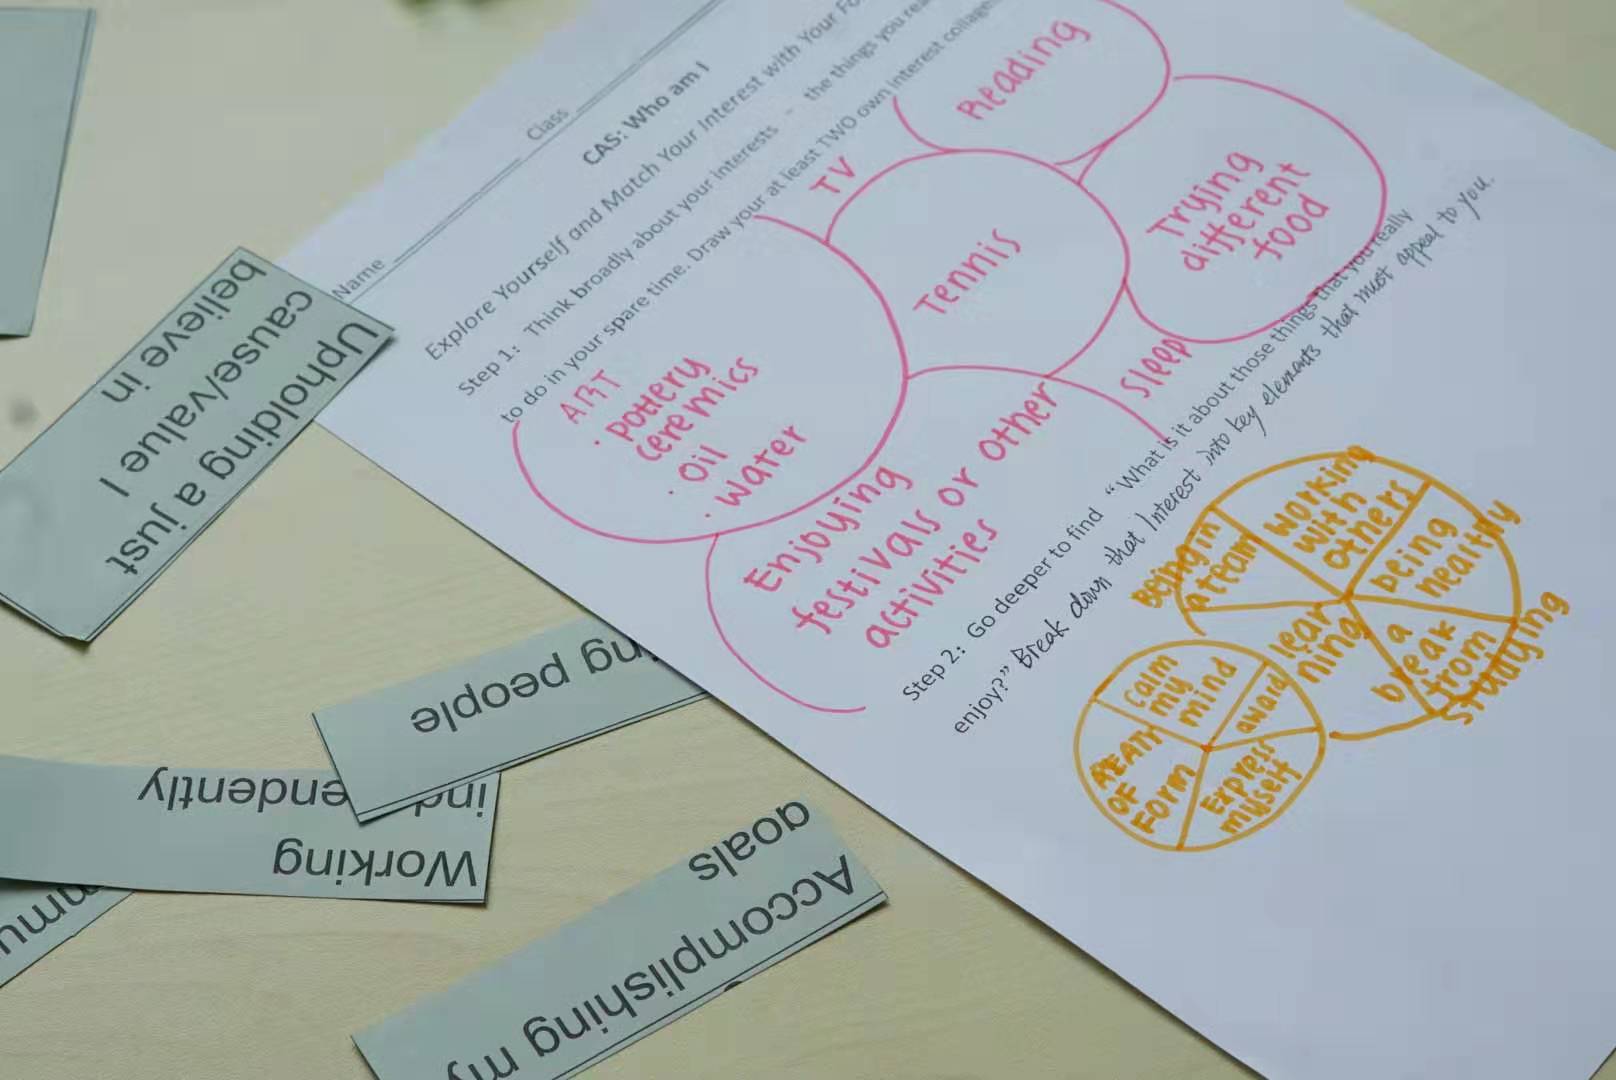 Name
Class
CAS: Who am I
Explore Yourself and Match Your Interest with Your
Step 1: Think broadly about your interests - the things you
to do in your spare time. Draw your at least TWO own interest
Reading
TV
Tennis
Trying
different
food
ART
· pottery
ceremics
· Oil
· water
Sleep
Enjoying
festivals or other
activities
Step 2: Go deeper to find "What is it about those things that you really
enjoy?" Break down that Interest into key elements that most appeal to you.
Being in
a team
working
with
others
being
healthy
lear
ning
a
break
from
studying
calm
my
mind
award
OF
FORM
Express
myself
Upholding a just
cause/value I
believe in
people
Working
Accomplishing my
goals